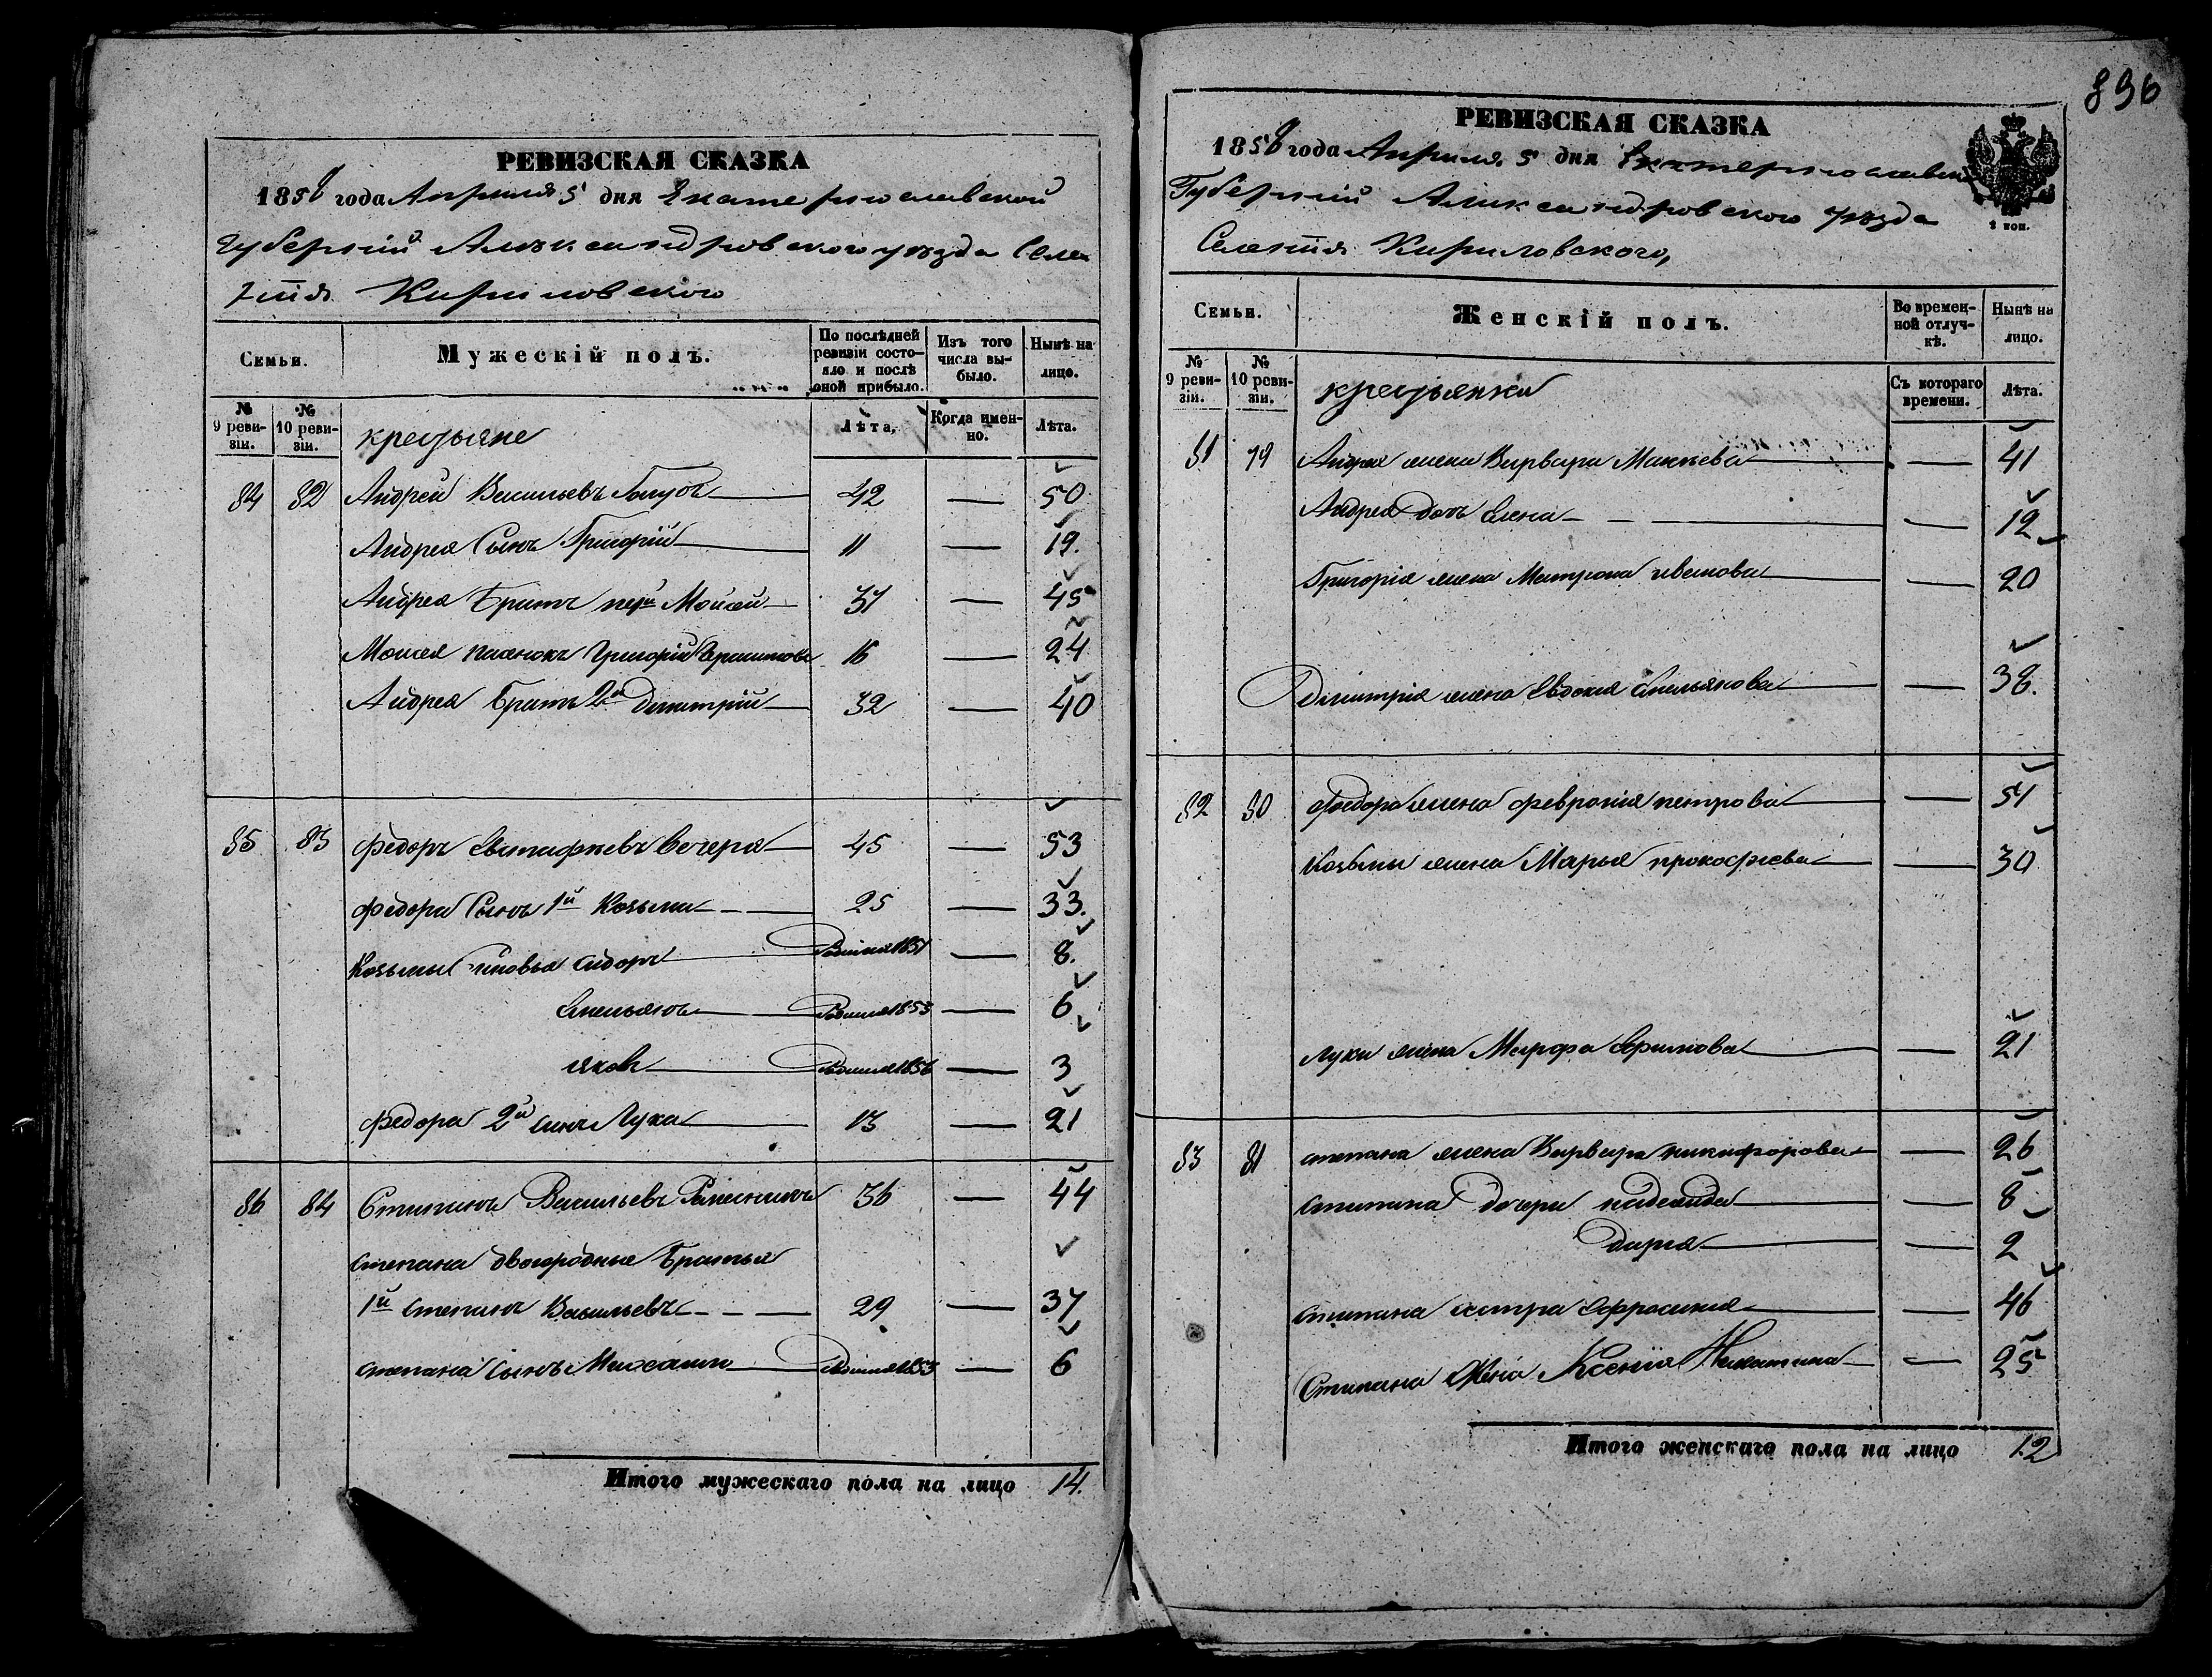 896
РЕВИЗСКАЯ СКАЗКА
1858 года Апреля 5 дня Екатеринославской
Губерніи Александровского уезда Селе
нія Кириловского
Семьи.
Мужескій полъ.
По послѣдней ревизіи состояло и послѣ оной прибыло.
Изъ того числа выбыло.
Нынѣ на лицо.
№ 9 ревизіи.
№ 10 ревизіи.
крестьяне
Лѣта,
Когда именно.
Лѣта.
84 82 Андрей Васильевъ Голубъ 42 — 50
Андрея Сынъ Григорій 11 — 19.
Андрея Братъ перй Моисей 37 — 45
Моисея Григорій 16 — 24
Андрея Братъ 2й Димитрій 32 — 40
85 83 Федоръ Евстафиевъ Вечеря 45 — 53
Федора Сынъ 1й Козьма 25 — 33.
Козьмы Синовья Сидоръ 1851 — 8.
Емельянъ 1853 — 6
яковъ 1856 — 3
Федора 2й Синъ Лука 13 — 21
86 84 Степанъ Васильевъ 36 — 44
степана двоюродные Братья
1й Степанъ Васильевъ 29 — 37
степана Сынъ Михаилъ 1853 — 6
Итого мужескаго пола на лицо 14.
РЕВИЗСКАЯ СКАЗКА
1858 года Апреля 5 дня Екатеринославской
Губерніи Александровского уезда
Селенія Кириловского,
2 коп.
Семьи.
Женскій полъ.
Во временной отлучкѣ.
Нынѣ на лицо.
№ 9 ревизіи.
№ 10 ревизіи.
крестьянки
Съ котораго времени.
Лѣта.
81 79 Андрея жена Варвара Макиева — 41
Андрея дочь Елена — 12
Григорія жена Матрона иванова — 20
Димитрія жена Евдокия Емельянова — 38.
82 80 Федора жена Феврония петрова — 51
Козьмы жена Марья прокофиева — 30
луки жена Марфа Ефимова — 21
83 81 степана жена Варвара никифорова — 26
степана Дочери надежда — 8
Дарья — 2
степана сестра Ефросиния — 46
Степана Жена Ксенія Никитина — 25
Итого женскаго пола на лицо 12